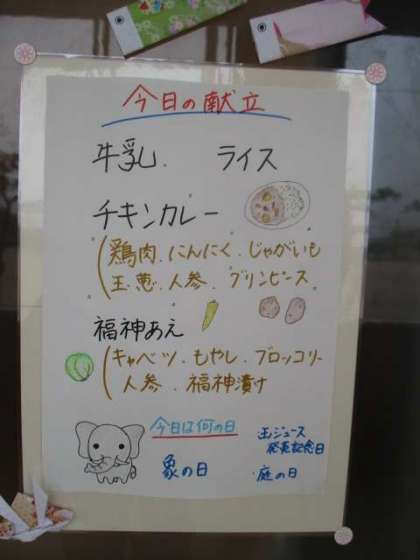 今日の献立
牛乳. ライス
チキンカレー
(鶏肉.にんにく.じゃがいも
玉葱.人参.グリンピース
福神あえ
(キャベツ.もやし.ブロッコリー
人参.福神漬け
今日は何の日
缶ジュース
発売記念日
象の日
庭の日